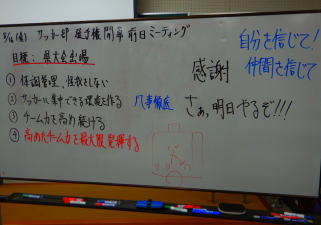 サッカー部 選手権開幕前日ミーティング
目標：県大会出場
① 体調管理、怪我をしない
② サッカーに集中できる環境を作る
③ チーム力を高め続ける
④ 高めたチーム力を最大限発揮する
凡事徹底
感謝
自分を信じて!
仲間を信じて
さぁ、明日やるぞ!!!